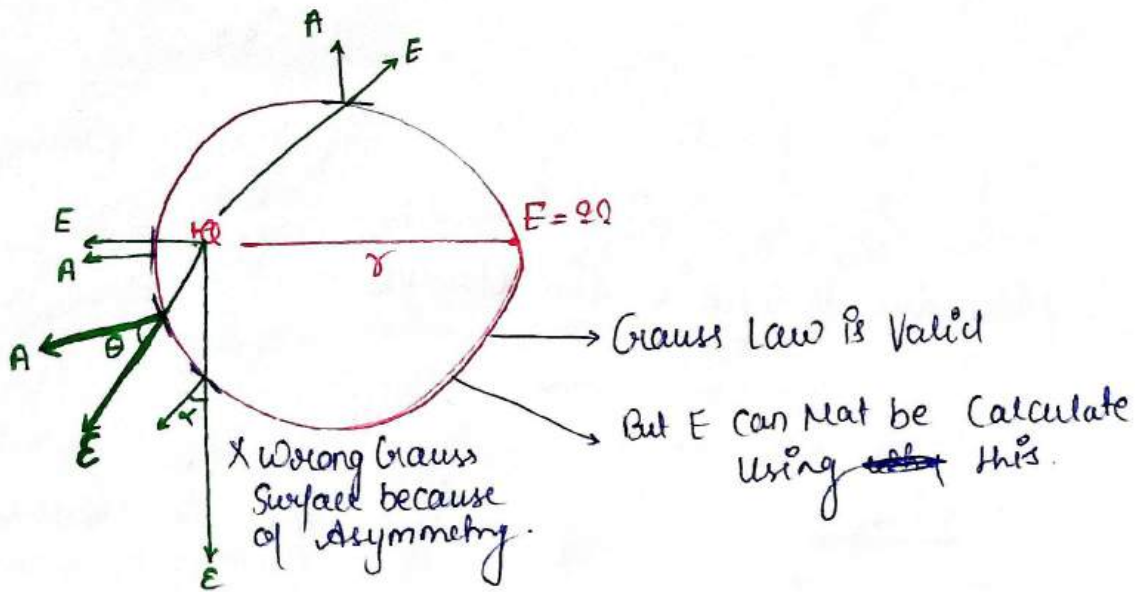 A
E
E
A
+Q
r
E = ??
A
θ
E
α
E
→ Gauss Law is Valid
→ But E can Not be Calculate
Using this.
X Wrong Gauss
Surface because
of Asymmetry.